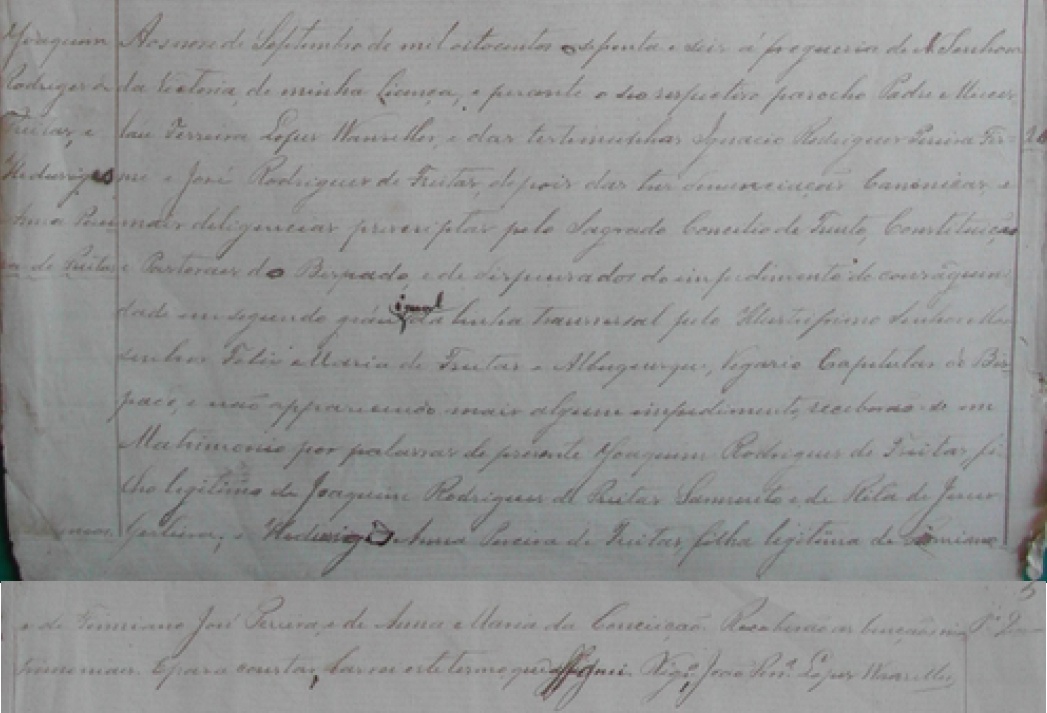 Joaquim
Rodrigues de
Freitas, e
Heduviges
Anna Perei
ra de Freitas
Aos nove de Septembro de mil oitocentos setenta e seis á freguesia de N. Senhora
da Victoria, de minha licença, e perante o seo respectivo parocho Padre Wences
lau Ferreira Lopes Wanriller, e das testemunhas Ignacio Rodrigues Pereira Fir-
me e José Rodrigues de Freitas, depois das tres denunciações Canonicas, e
mais diligencias prescriptas pelo Sagrado Concilio de Trento, Constituição
e Pastoraes do Bispado, e de dispensados do impedimento de consãguini
dade em segundo gráu igual da linha transversal pelo Illustrissimo Senhor Mon
senhor Felix Maria de Freitas e Albuquerque, Vigario Capitular do Bis-
pado, e não apparecendo mais algum impedimento, receberão-se em
Matrimonio por palavras de presente Joaquim Rodrigues de Freitas, fi
lho legitimo de Joaquim Rodrigues de Freitas Sarmento e de Rita de Jesus
e Heduviges Anna Pereira de Freitas, filha legitima de Firmiano
e de Firmiano José Pereira, e de Anna Maria da Conceição. Receberão as benção ma
trimoniaes. E para constar, lavrei este termo que assignei. Vigrº João Ferrª Lopes Wanriller